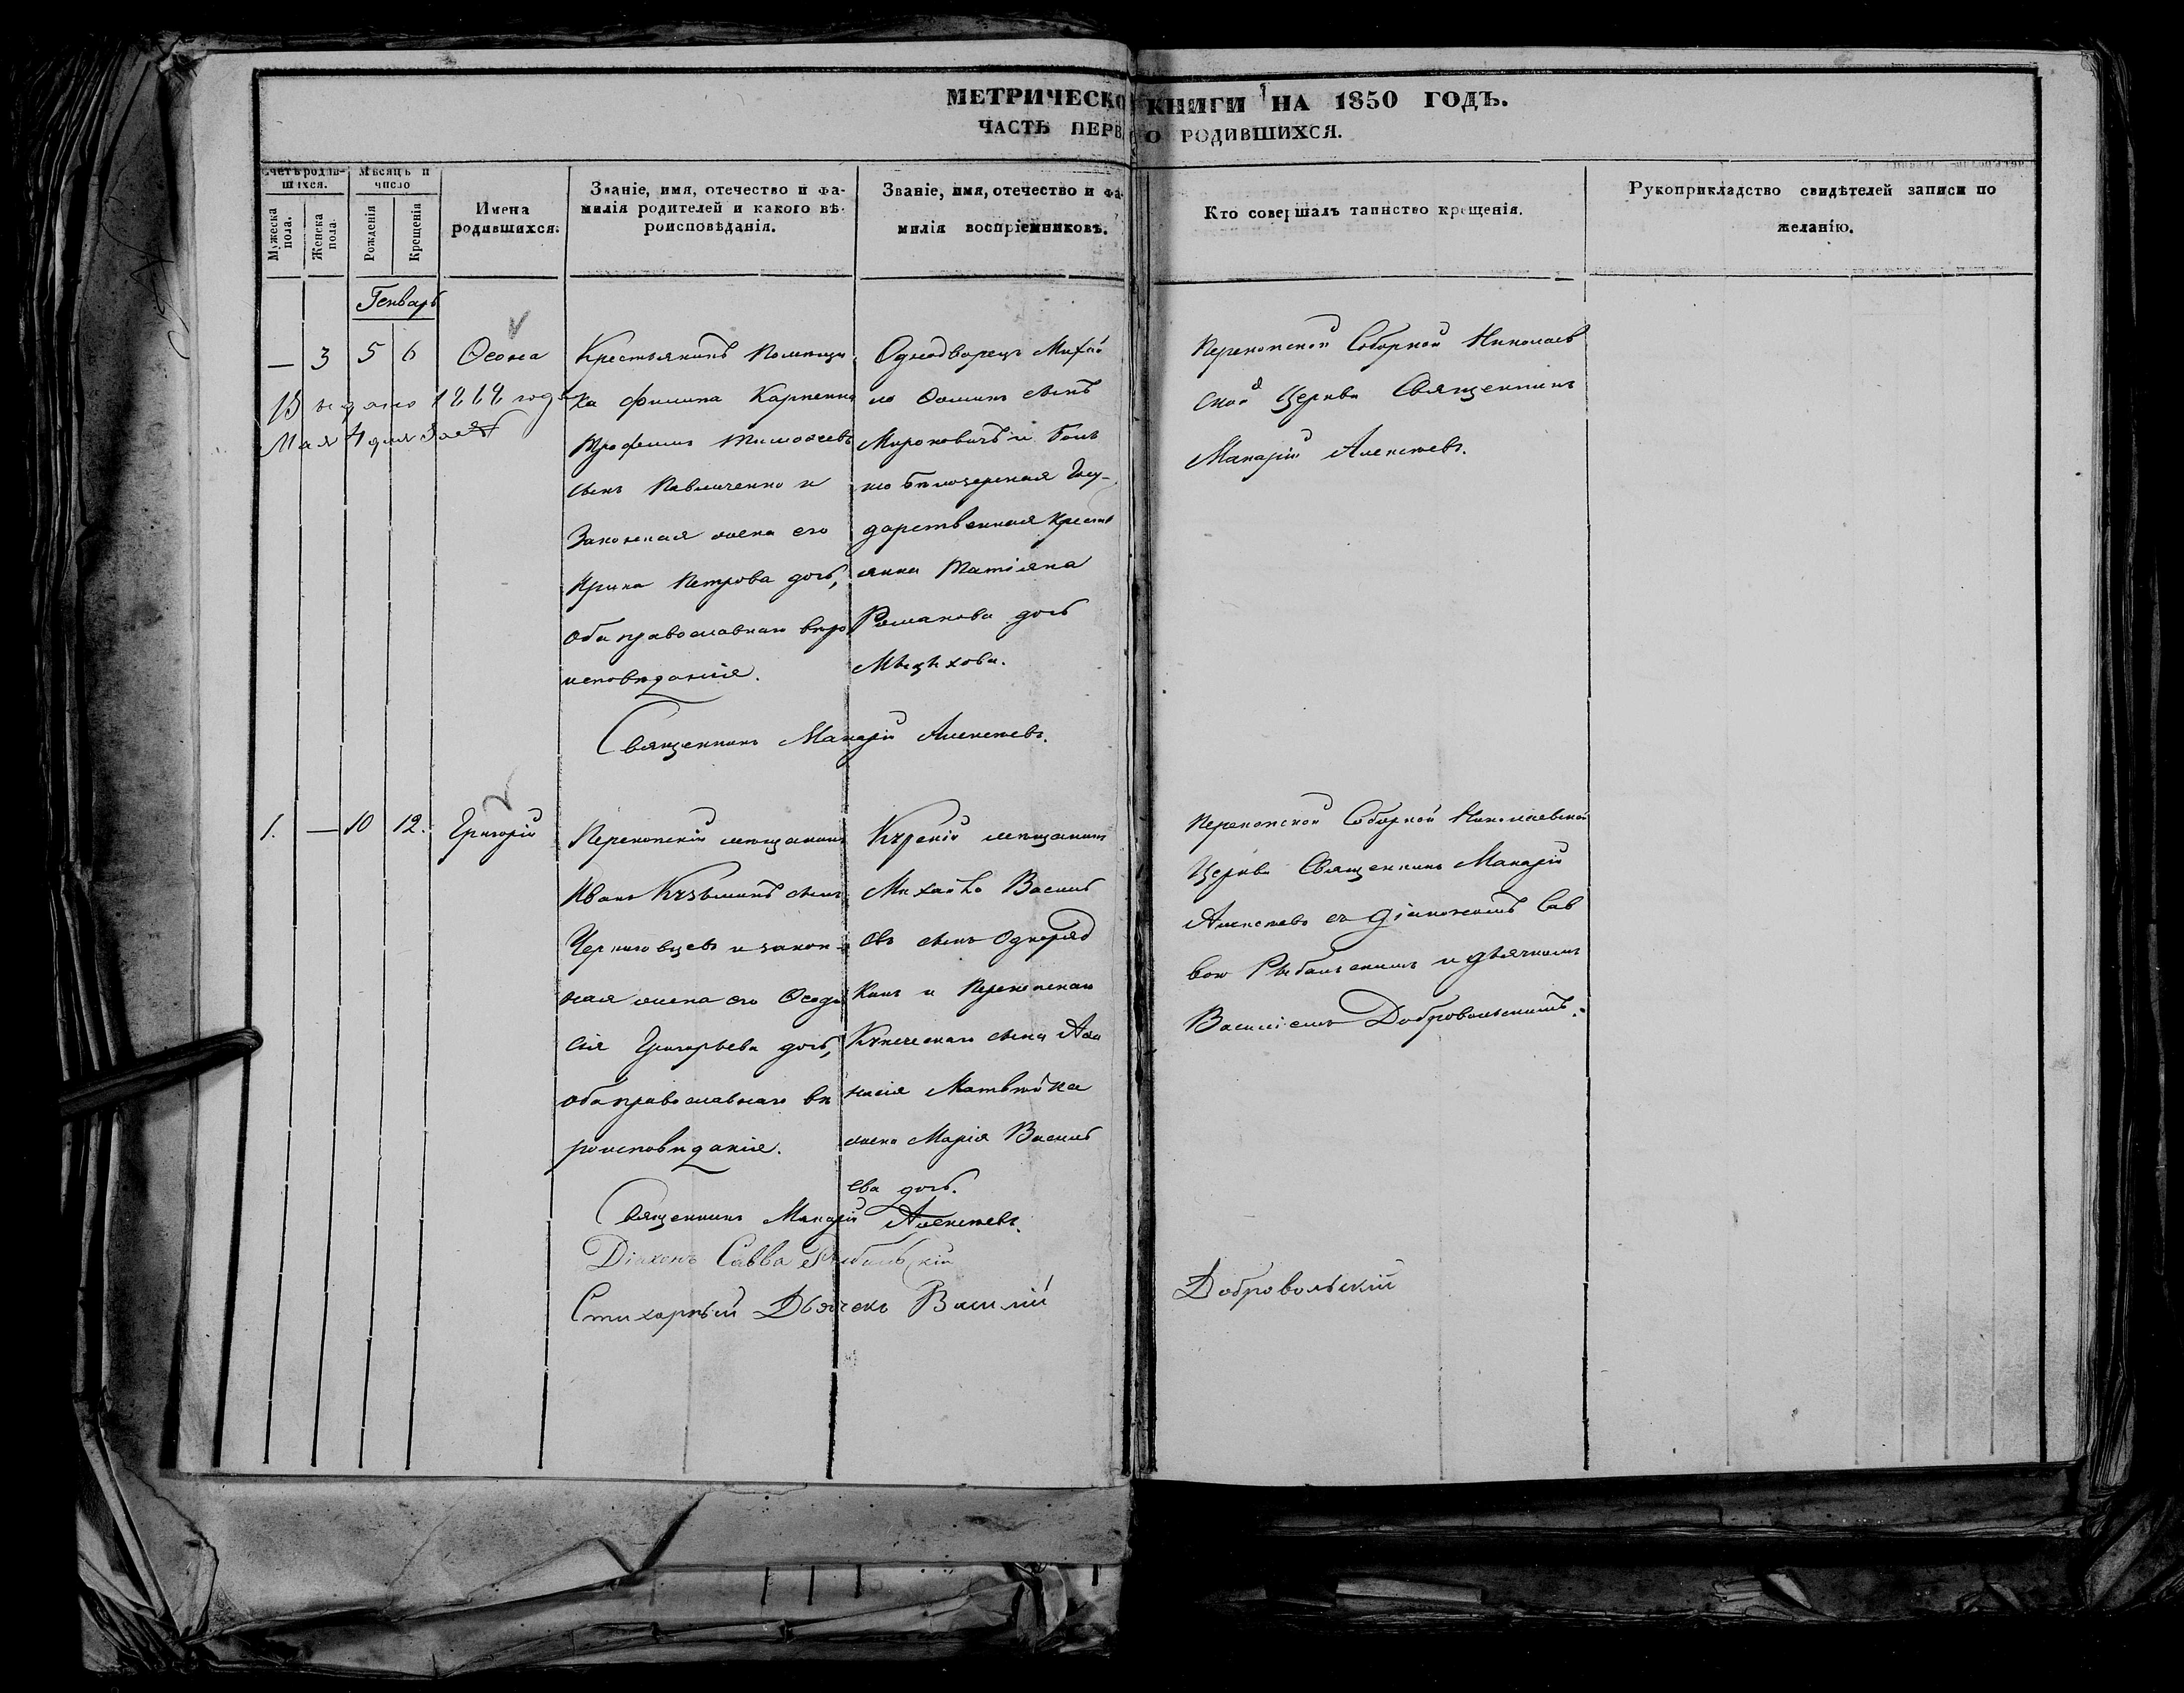 МЕТРИЧЕСКО КНИГИ НА 1850 ГОДЪ.
ЧАСТЬ ПЕРВ О РОДИВШИХСЯ.
Счетъ родив-
шихся.
Мужеска
пола.
Женска
пола.
Мѣсяцъ и
число
Рожденія
Крещенія
Имена
родившихся.
Званіе, имя, отечество и фа-
милія родителей и какого вѣ-
роисповѣданія.
Званіе, имя, отечество и фа-
милія воспріемниковъ.
Кто совершалъ таинство крещенія.
Рукоприкладство свидѣтелей записи по
желанію.
Генварь
— 3 5 6
Ѳеона
Выдано года
Мая 4 дня
Крестьянинъ Помѣщи
ка Филипа
Трофимъ Тимоѳеевъ
сынъ Павличенко и
Законная жена его
Ирина Петрова дочь,
оба православнаго вѣро
исповѣданія.
Однодворецъ Михай
ло Ѳоминъ сынъ
Мироновичъ и
Госу-
дарственная крест
янка Татіяна
Романова дочь
Перекопской Соборной Николаев
ской Церкви Священникъ
Макарій Алексѣевъ.
Священникъ Макарій Алексѣевъ.
1. — 10 12.
Григорій
Перекопскій мѣщанинъ
Иванъ Кузьминъ сынъ
Черниговцевъ и закон-
ная жена его Ѳеодо
сія Григорьева дочь,
оба православнаго вѣ
роисповѣданія.
Курскій мѣщанинъ
Михайло Василь
евъ сынъ Однеряд
кинъ и Перекопскаго
Купеческаго сына Аѳа
насія Матвѣйка
жена Марія Василь
ева дочь.
Перекопской Соборной Николаевской
Церкви Священникъ Макарій
Алексѣевъ съ Діакономъ Сав
вою Рыбальскимъ и дьячкомъ
Василіемъ Добровольскимъ.
Священникъ Макарій Алексѣевъ.
Діаконъ Савва Рыбальскій
Стихарный Дьячекъ Василій Добровольскій